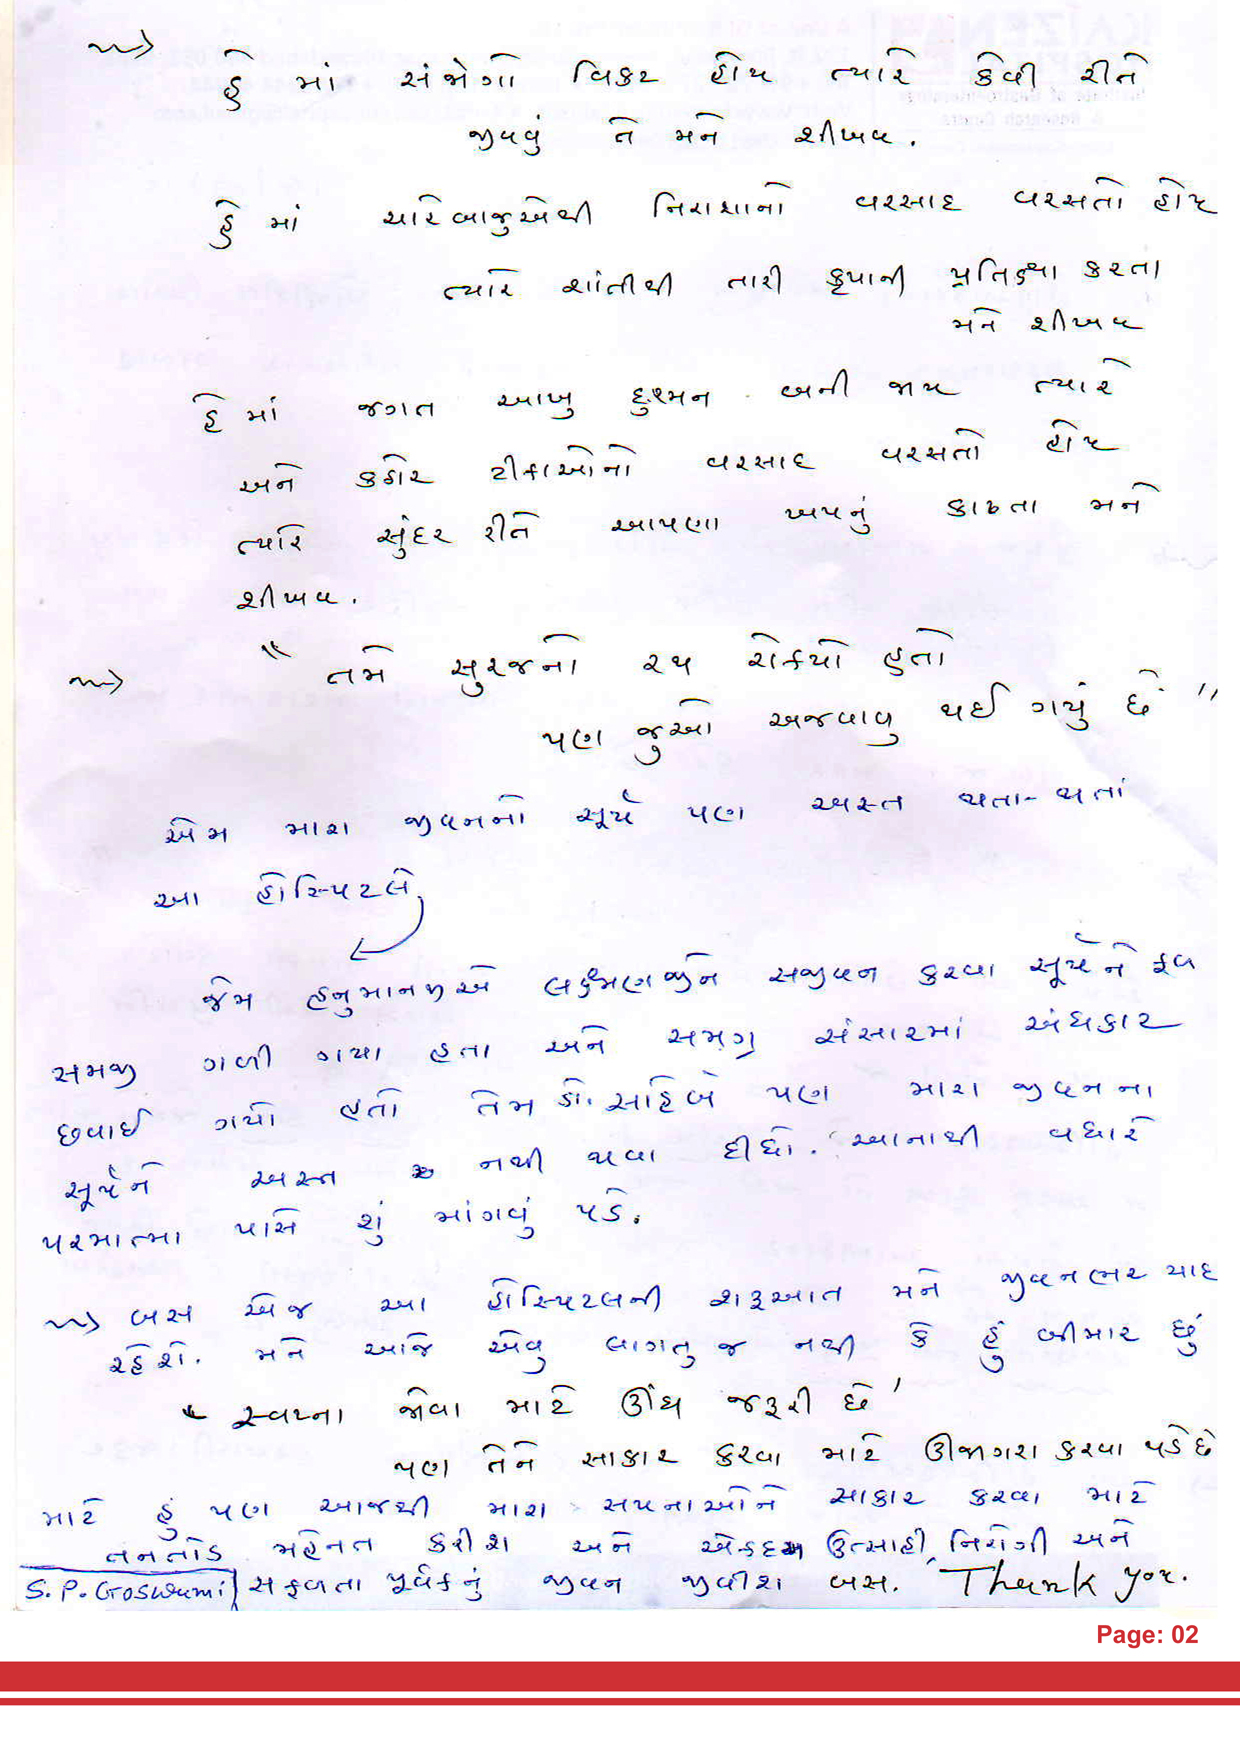 હે માં સંજોગો વિકટ હોય ત્યારે કેવી રીતે
જીવવું તે મને શીખવ.
હે માં ચારેબાજુએથી નિરાશાનો વરસાદ વરસતો હોય
ત્યારે શાંતીથી તારી કૃપાની પ્રતિક્ષા કરતા
મને શીખવ
હે માં જગત આખુ દુશ્મન બની જાય ત્યારે
અને કઠોર ટીકાઓનો વરસાદ વરસતો હોય
ત્યારે સુંદર રીતે આપણા ખપનું કાઢતા મને
શીખવ.
" તમે સુરજનો રથ રોકયો હતો
પણ જુઓ અજવાળુ થઈ ગયું છે "
એમ મારા જીવનનો સૂર્ય પણ અસ્ત થતા-થતાં
આ હોસ્પિટલે
જેમ હનુમાનજીએ લક્ષ્મણજીને સજીવન કરવા સૂર્યને ફળ
સમજી ગળી ગયા હતા અને સમગ્ર સંસારમાં અંધકાર
છવાઈ ગયો હતો તેમ ડૉ. સાહેબે પણ મારા જીવનના
સૂર્યને અસ્ત નથી થવા દીધો. આનાથી વધારે
પરમાત્મા પાસે શું માંગવું પડે.
બસ એજ આ હોસ્પિટલની શરૂઆત મને જીવનભર યાદ
રહેશે. મને આજે એવુ લાગતુ જ નથી કે હું બીમાર છું
" સ્વપ્ના જોવા માટે ઊંઘ જરૂરી છે '
પણ તેને સાકાર કરવા માટે ઊજાગરા કરવા પડે છે
માટે હું પણ આજથી મારા સપનાઓને સાકાર કરવા માટે
તનતોડ મહેનત કરીશ અને એકદમ ઉત્સાહી, નિરોગી અને
S.P. Goswami સફળતા પૂર્વકનું જીવન જીવીશ બસ. Thank you.
Page: 02